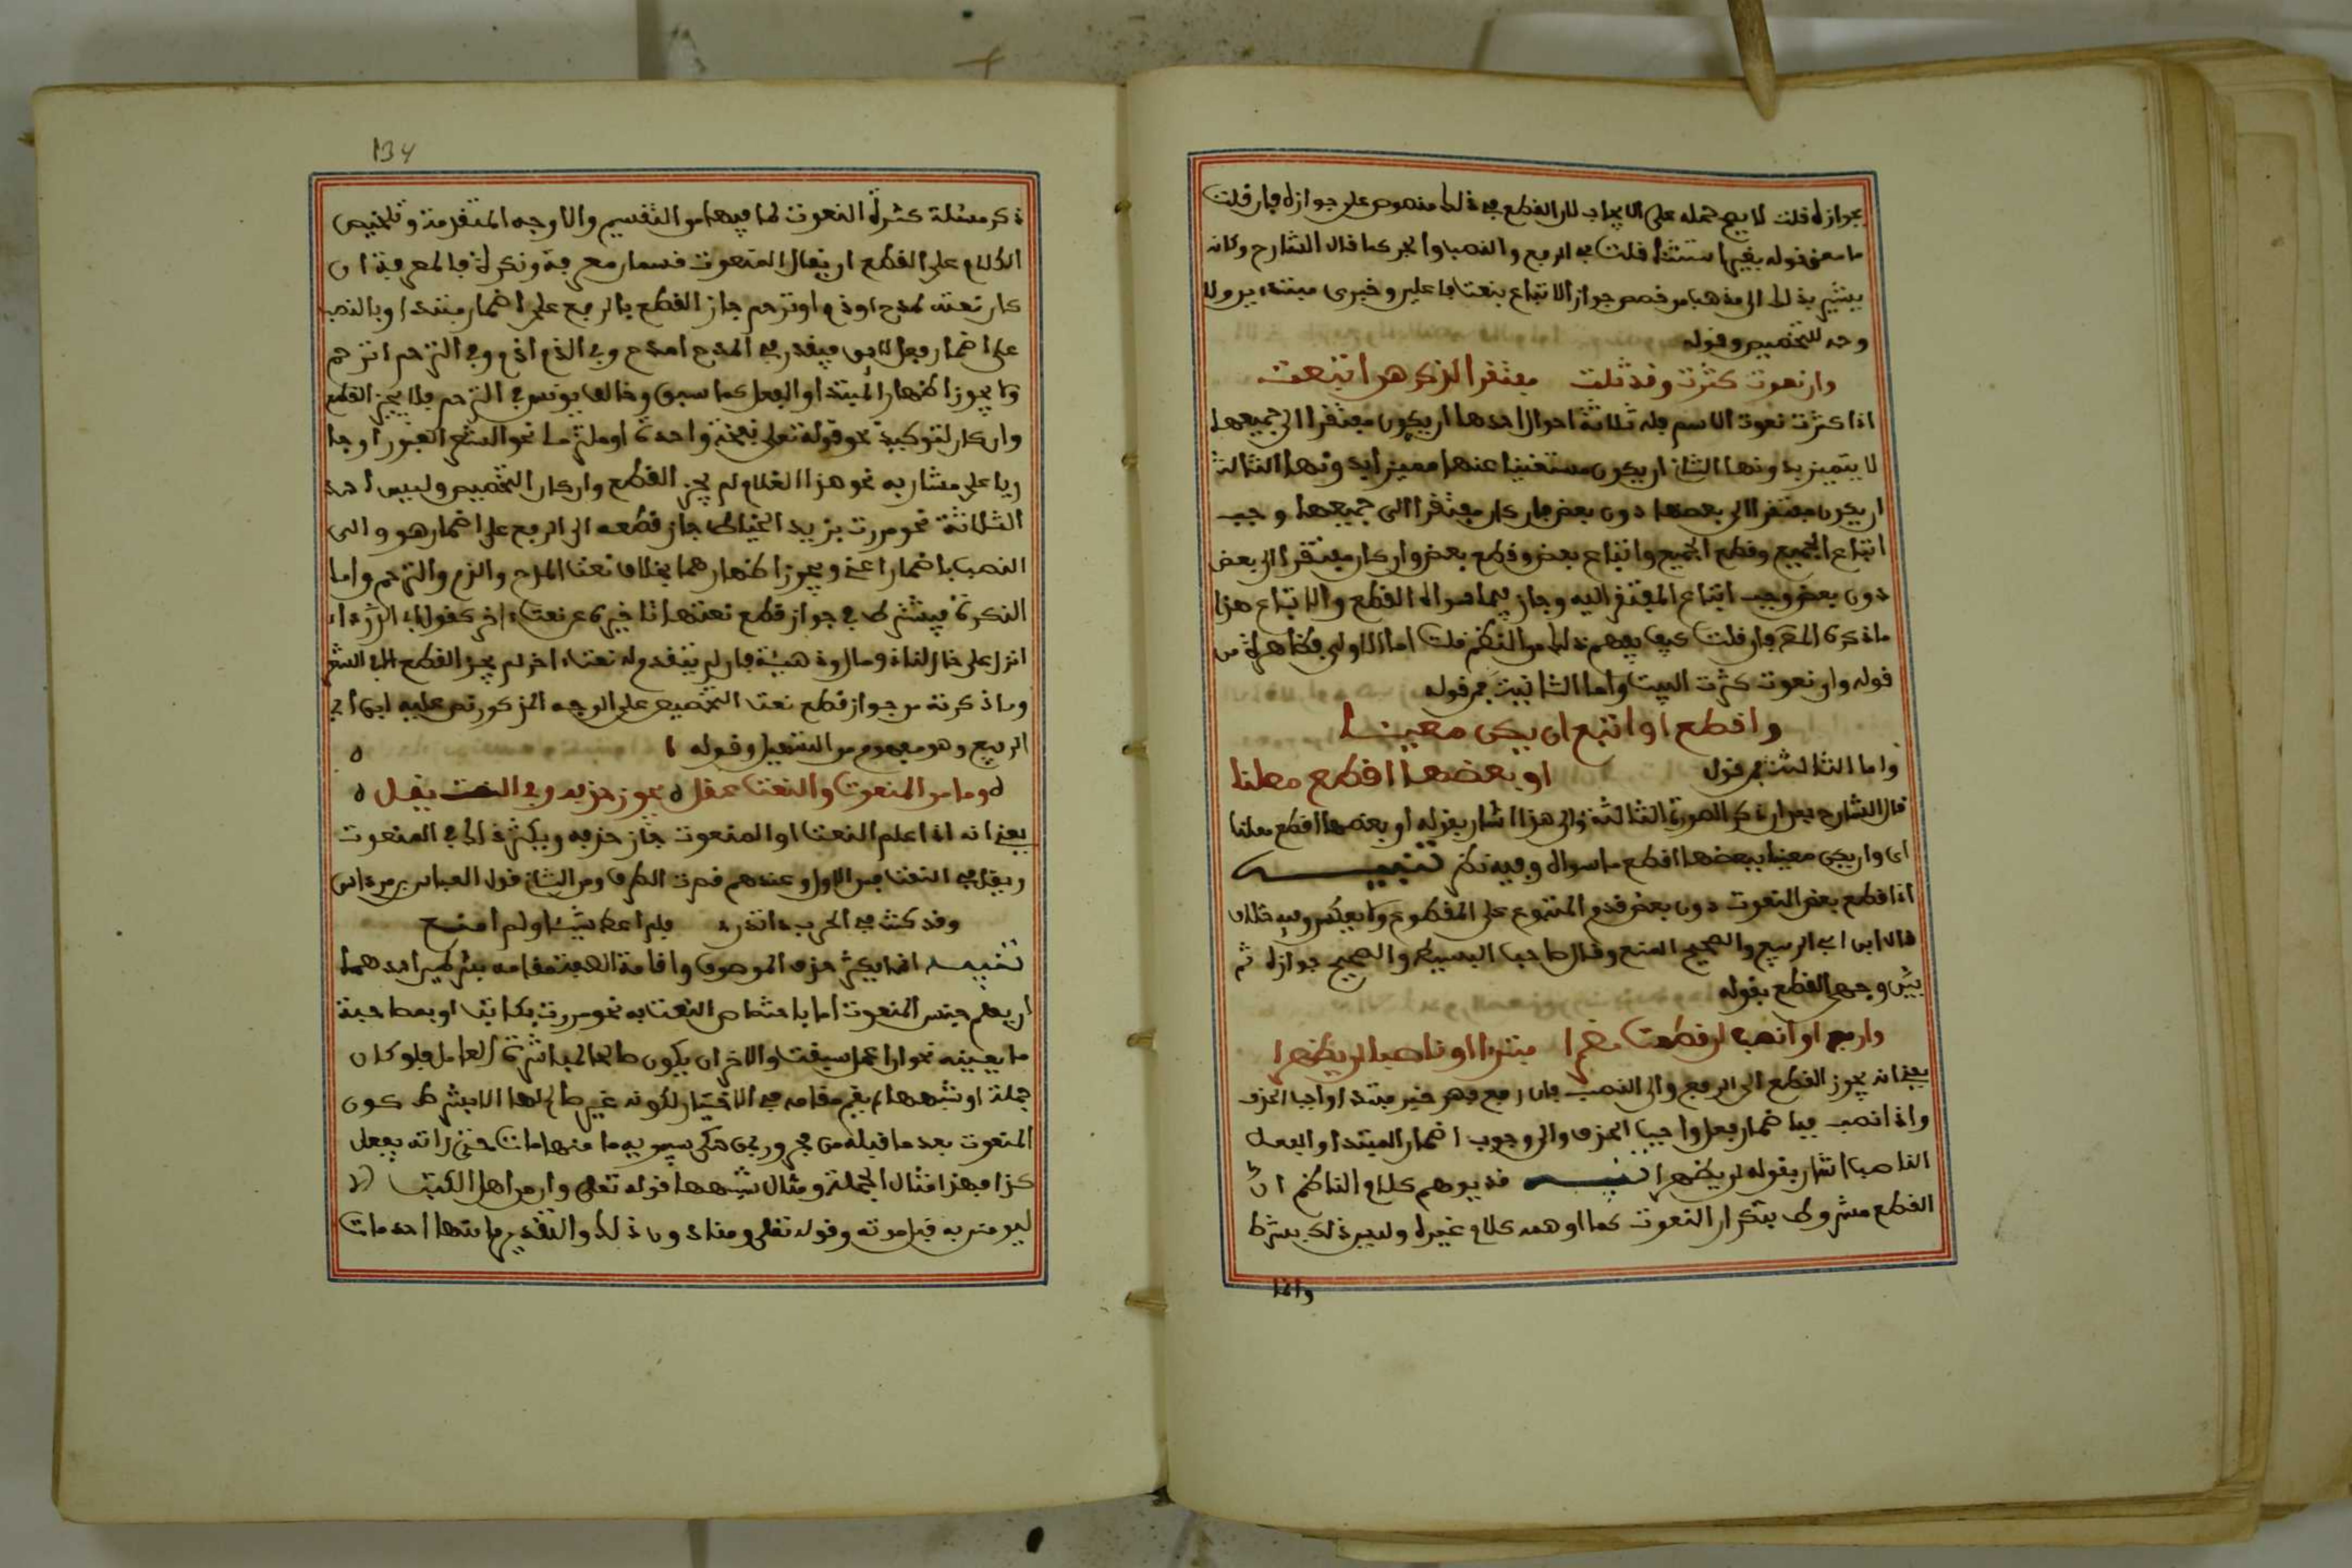 بجوازه قلت لا يصح حمله على الايجاب لان القطع في ذلك منصوص على جوازه فان قلت
ما معنى قوله بغير استثنا قلت في الرفع والنصب والجر كما قال الشارح وكانه
يشير بذلك الى مذهب من خصص جواز الاتباع بنعت فاعلين وخبرى مبتدءين ولا
وجه للتخصيص وقوله
وان نعوت كثرت وقد تلت مفتقرا لذكرهن اتبعت
اذا كثرت نعوت الاسم فله ثلاثة احوال احدها ان يكون مفتقرا الى جميعها
لا يتميز بدونها الثاني ان يكون مستغنيا عنها متميزا بدونها الثالث
ان يكون مفتقرا الى بعضها دون بعض فان كان مفتقرا الى جميعها وجب
اتباع الجميع وقطع الجميع واتباع بعض وقطع بعض وان كان مفتقرا الى بعض
دون بعض وجب اتباع المفتقر اليه وجاز فيما سواه القطع والاتباع هذا
ما ذكره المص فان قلت كيف يفهم ذلك من النظم قلت اما الاولى فظاهرة من
قوله وان نعوت كثرت البيت واما الثانية فمن قوله
واقطع او اتبع ان يكن معينا
واما الثالثة فمن قوله او بعضها اقطع معلنا
قال الشارح بعد ان ذكر الصورة الثالثة والى هذا اشار بقوله او بعضها اقطع معلنا
اى وان يكن معينا ببعضها اقطع ما سواه وفيه نظر تنبيه
اذا قطع بعض النعوت دون بعض قدم المتبوع على المقطوع ولا يعكس وفيه خلاف
قال ابن ابي الربيع والصحيح المنع وقال صاحب البسيط والصحيح جوازه ثم
بيّن وجهي القطع بقوله
وارفع او انصب ان قطعت مضمرا مبتدا او ناصبا لن يظهرا
يعني انه يجوز القطع الى الرفع والى النصب فان رفع فهو خبر مبتدا واجب الحذف
واذا نصب فباضمار فعل واجب الحذف والى وجوب اضمار المبتدا والفعل
الناصب اشار بقوله لن يظهرا تنبيه قد يوهم كلام الناظم ان
القطع مشروط بتكرار النعوت كما اوهمه كلام غيره وليس ذلك بشرط
وانما
134
ذكر مسئلة كثرة النعوت لما فيها من التقسيم والاوجه المتقدمة وتلخيص
الكلام على القطع ان يقال المنعوت قسمان معرفة ونكرة فالمعرفة ان
كان نعته لمدح او ذم او ترحم جاز القطع بالرفع على اضمار مبتدا وبالنصب
على اضمار فعل لائق فيقدر في المدح امدح وفي الذم اذم وفي الترحم اترحم
ولا يجوز اظهار المبتدا والفعل كما سبق وخالف يونس في الترحم فلا يجيز القطع
وان كان لتوكيد نحو قوله تعلى نفخة واحدة او ملتزما نحو الشعرى العبور او جا
ريا على مشار به نحو هذا الغلام لم يجز القطع وان كان لتخصيص وليس احد
الثلاثة نحو مررت بزيد الخياط جاز قطعه الى الرفع على اضمار هو والى
النصب باضمار اعني ويجوز اظهارهما بخلاف نعت المدح والذم والترحم واما
النكرة فيشترط في جواز قطع نعتها تاخيره عن نعت اخر كقول ابي الدرداء
نزلنا على خال لنا ذو مال وذو هيئة فان لم يتقدم له نعت اخر لم يجز القطع الا في الشعر
وما ذكرته من جواز قطع نعت التخصيص على الوجه المذكور نص عليه ابن ابي
الربيع وهو مفهوم من التسهيل وقوله
وما من المنعوت والنعت عقل يجوز حذفه وفي النعت يقل
يعني انه اذا علم النعت او المنعوت جاز حذفه ويكثر ذلك في المنعوت
ويقل في النعت فمن الاول وعندهم قصرت الطرف ومن الثاني قول العباس بن مرداس
وقد كنت في الحرب ذا تدرء فلم اعط شيئا ولم امنع
تنبيه انما يكثر حذف الموصوف واقامة الصفة مقامه بشرطين احدهما
ان يعلم جنس المنعوت اما باختصاص النعت به نحو مررت بكاتب او بمصاحبة
ما يعينه نحو ان اعمل سبغت والاخر ان يكون صالحا لمباشرة العامل فلو كان
جملة او شبهها لم يقم مقامه في الاختيار لكونه غير صالح لها الا بشرط كون
المنعوت بعد ما قبله من مجرور بمن حكى سيبويه ما منهما مات حتى رايته يفعل
كذا فهذا مثال الجملة ومثال شبهها قوله تعلى وان من اهل الكتب الا
ليومنن به قبل موته وقوله تعلى ومنا دون ذلك والتقدير ما منهما احد مات